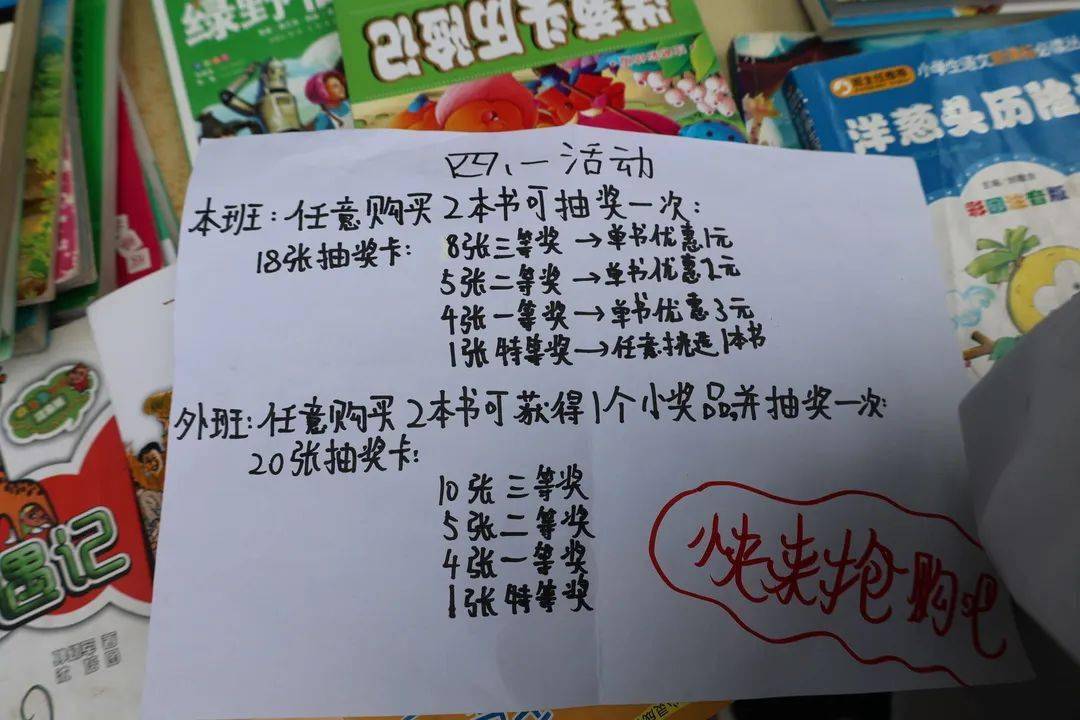 绿野仙
洋葱头历险记
班主任推荐
小学生语文新课标必读丛
洋葱头历险
彩图注音版
四、一活动
本班：任意购买2本书可抽奖一次：
18张抽奖卡：
8张三等奖→单书优惠1元
5张二等奖→单书优惠2元
4张一等奖→单书优惠3元
1张特等奖→任意挑选1本书
外班：任意购买2本书可获得1个小奖品,并抽奖一次：
20张抽奖卡：
10张三等奖
5张二等奖
4张一等奖
1张特等奖
快来抢购吧
遇记